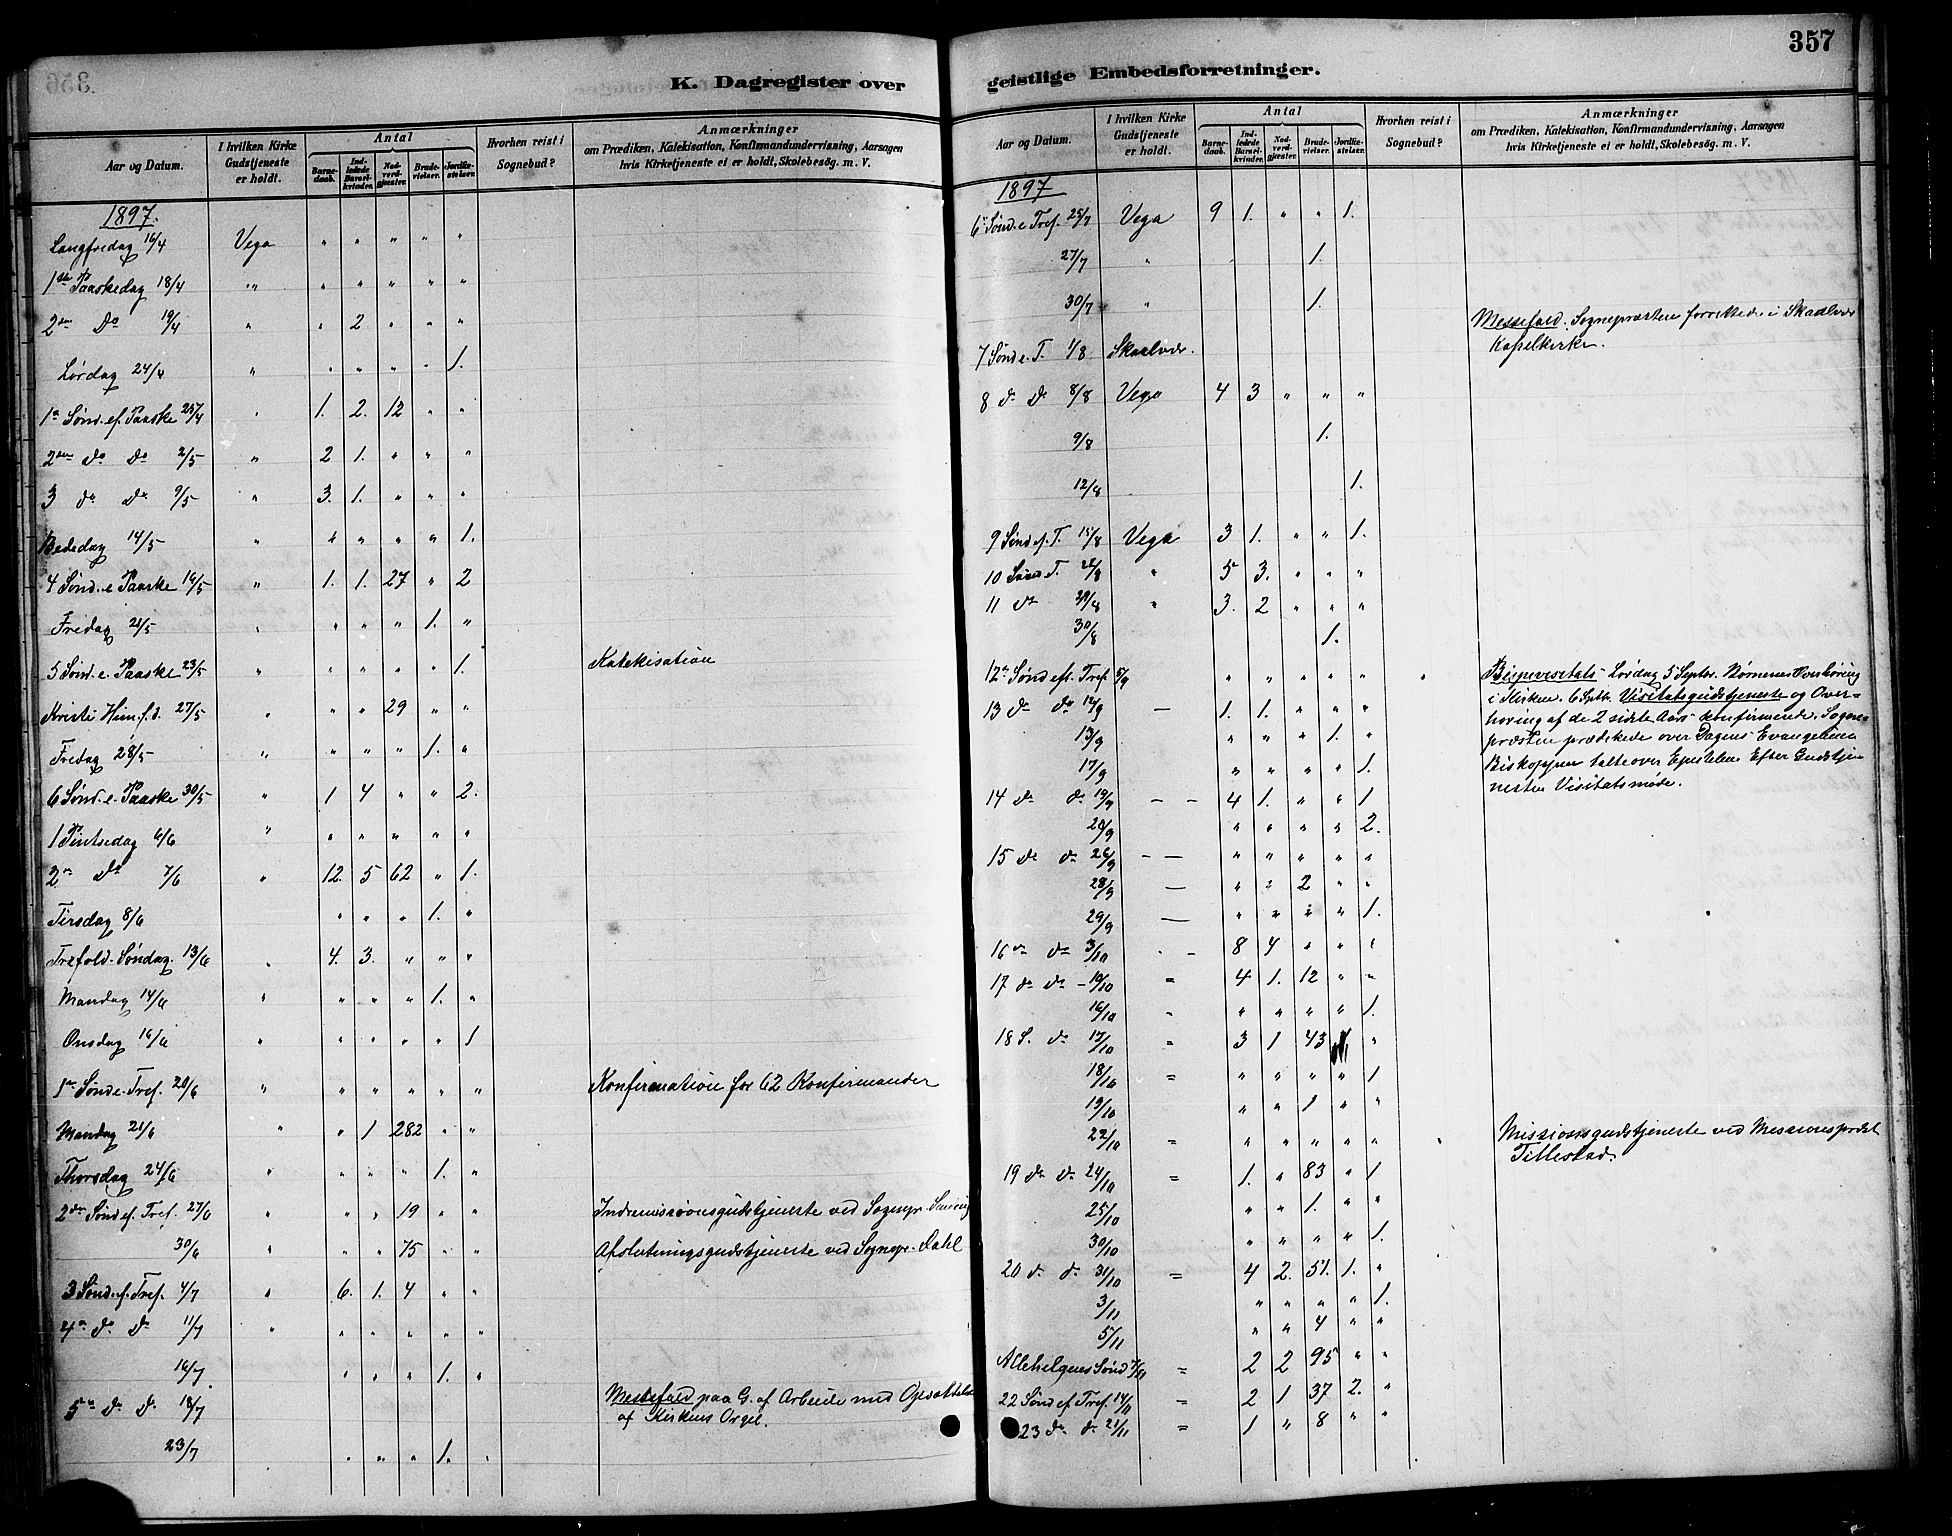 357
K. Dagregister over
Aar og Datum. I hvilken Kirke Gudstjeneste er holdt. Antal Barnedaab. Indledede Barselkvinder. Nadverdgjester. Brudevielser. Jordfæstelser. Hvorhen reist i Sognebud? Anmærkninger om Prædiken, Katekisation, Konfirmandundervisning, Aarsagen hvis Kirketjeneste ei er holdt, Skolebesøg. m. V.
1897.
Langfredag 16/4 Vega " " " " "
1ste Paaskedag 18/4 " " " " " "
2den Do 19/4 " " 2 " " "
Lørdag 24/4 " " " " " 1.
1e Sønd. ef. Paaske 25/4 " 1. 2. 12 " "
2den do do 2/5 " 2 1. " " "
3 do do 9/5 " 3. 1. " " "
Bededag 14/5 " " " " " 1.
4 Sønd. e Paaske 16/5 " 1. 1. 27 " 2
Fredag 21/5 " " " " 1. "
5 Sønd. e. Paaske 23/5 " " " " " 1. Katekisation
Kristi Him. f. d. 27/5 " " " 29 " "
Fredag 28/5 " " " " 1. "
6 Sønd. e. Paaske 30/5 " 1 4 " " 2.
1 Pintsedag 6/6 " " " " " "
2n Do 7/6 " 12. 5 62 " 1.
Tirsdag 8/6 " " " 1. "
Trefold. Søndag. 13/6 " 4. 3. " " "
Mandag 14/6 " " " " 1. "
Onsdag 16/6 " " " " " 1
1e Sønd e. Tref. 20/6 " " " " " " Konfirmation for 62 Konfirmander
Mandag 21/6 " " 1 282 " "
Thorsdag 24/6 " " " " 1. "
2den Sønd ef. Tref. 27/6 " " " 19 " " Indremissionsgudstjeneste ved Sognepr.
30/6 " " " 75 " " Afslutningsgudstjeneste ved Sognepr. Dahl
3 Sønd. ef. Tref. 4/7 " 6. 1. 4 " "
4e do do 11/7 " " " " " "
16/7. " " " 1. "
5te do do 18/7 Messefald paa G. af Arbeide med Opsættelse
af Kirkens Orgel.
23/7 " " " 1. "
geistlige Embedsforretninger.
Aar og Datum. I hvilken Kirke Gudstjeneste er holdt. Antal Barnedaab. Indledede Barselkvinder. Nadverdgjester. Brudevielser. Jordfæstelser. Hvorhen reist i Sognebud? Anmærkninger om Prædiken, Katekisation, Konfirmandundervisning, Aarsagen hvis Kirketjeneste ei er holdt, Skolebesøg. m. V.
1897
6te Sønd. e Tref. 25/7 Vega 9 1. " " 1.
27/7 " 1.
30/7 " 1.
Messefald. Sognepræsten forrettede i Skaalvær
Kapelkirke.
7 Sønd e. T. 1/8 Skaalvær.
8 do do 8/8 Vega 4 3 " " "
9/8 1.
12/8 1.
9 Sønd ef. T. 15/8 Vega 3 1. " " 1.
10 Sønd T. 22/8 " 5 3. " " "
11 do 29/8 " 3. 2 " " "
30/8 1.
12te Sønd eft. Tref. 5/9 " " " " " " Bispevisitats - Lørdag 5 Septbr. Børnenes Overhøring
i Kirken. 6 Septb. Visitatsgudstjeneste og Over-
13 do do 12/9 — 1. 1. " " " høring af de 2 sidste Aars konfirmerede. Sogne-
13/9 " " " 1. " præsten prædikede over Dagens Evangelium
17/9 " " " " 1. Biskoppen talte over Epistelen. Efter Gudstje-
nesten Visitatsmøde.
14 do do 19/9 — — 4 1. " " 1
20/9 " " " " 2.
15 do do 26/9 — — " " " " "
28/9 — " " 2 " "
29/9 — " " " " 1.
16de do 3/10 " - 8 4 " " "
17 do do - 10/10 = 4 1. 12 " "
16/10 " " " " " 1.
18 S. do 17/10 = 3 1 43 "
18/10 = " " " " 1
19/10 " " 1 " "
22/10 = " " " " " " Missionsgudstjeneste ved Missionsprest
Tillestad.
19 do do 24/10 = 1. " 83 " 1
25/10 " " 1. " "
30/10 " " " " 1.
20 do do 31/10 = 4 2. 51. 1. "
3/11 " " " " 1.
5/11 " " 4 " "
Allehelgens Sønd 7/11 = 2 2 95 " "
22 Sønd ef Tref. 14/11 = 2 1 37 2. "
23 do do 21/11 = 1 " 8 " "